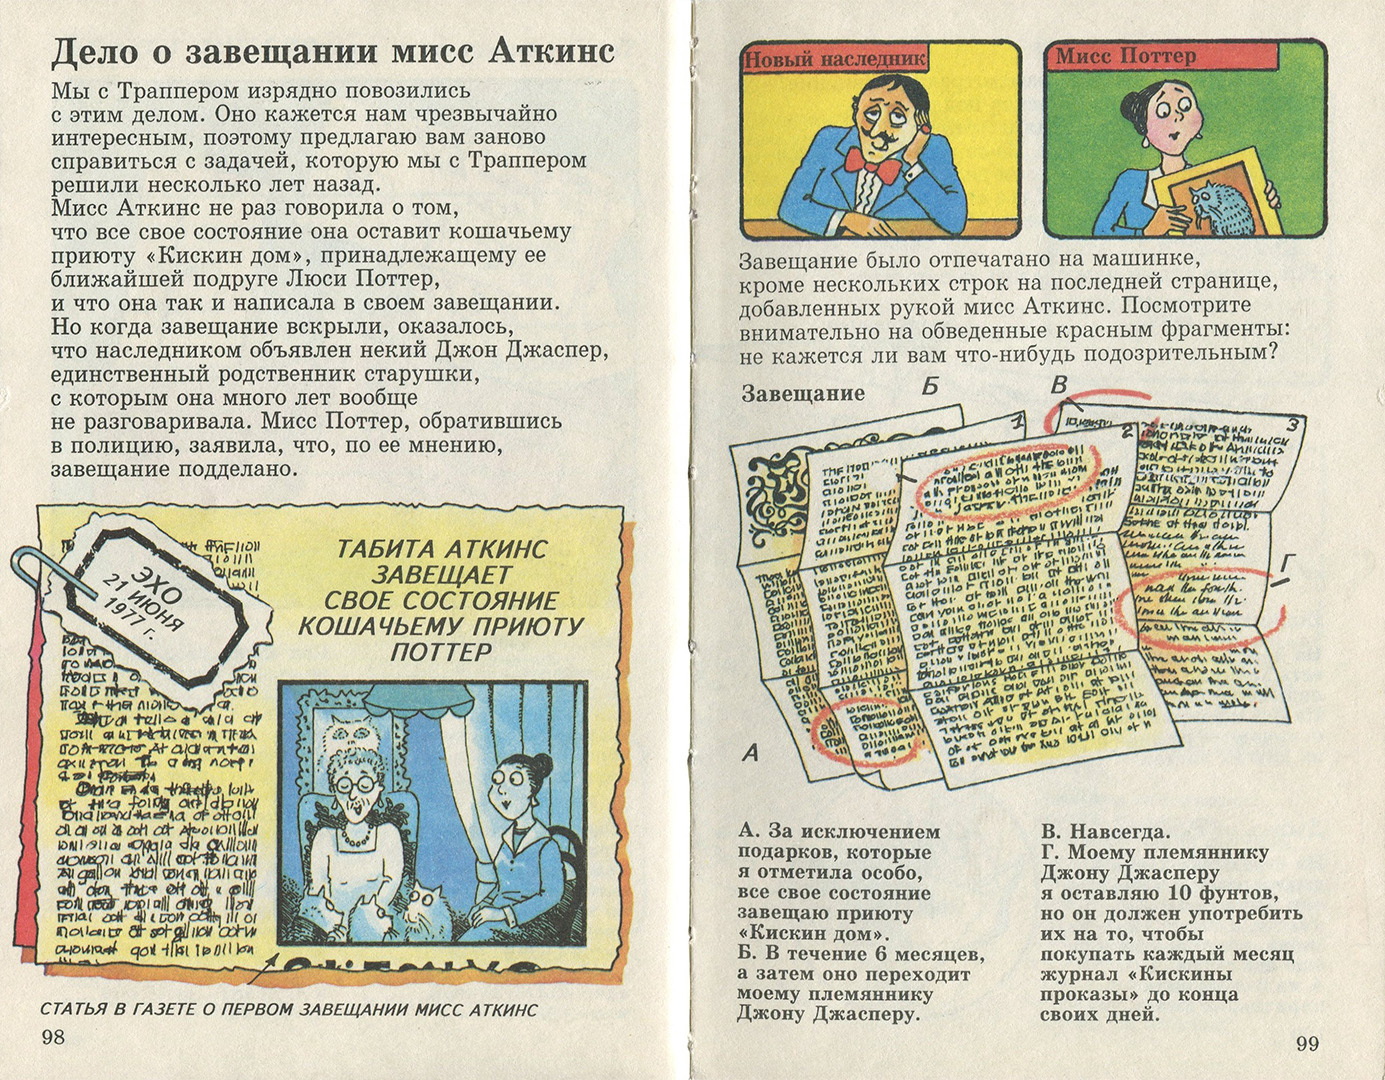 Дело о завещании мисс Аткинс
Мы с Траппером изрядно повозились
с этим делом. Оно кажется нам чрезвычайно
интересным, поэтому предлагаю вам заново
справиться с задачей, которую мы с Траппером
решили несколько лет назад.
Мисс Аткинс не раз говорила о том,
что все свое состояние она оставит кошачьему
приюту «Кискин дом», принадлежащему ее
ближайшей подруге Люси Поттер,
и что она так и написала в своем завещании.
Но когда завещание вскрыли, оказалось,
что наследником объявлен некий Джон Джаспер,
единственный родственник старушки,
с которым она много лет вообще
не разговаривала. Мисс Поттер, обратившись
в полицию, заявила, что, по ее мнению,
завещание подделано.
ЭХО
21 ИЮНЯ
1977 г.
ТАБИТА АТКИНС
ЗАВЕЩАЕТ
СВОЕ СОСТОЯНИЕ
КОШАЧЬЕМУ ПРИЮТУ
ПОТТЕР
СТАТЬЯ В ГАЗЕТЕ О ПЕРВОМ ЗАВЕЩАНИИ МИСС АТКИНС
98
Новый наследник
Мисс Поттер
Завещание было отпечатано на машинке,
кроме нескольких строк на последней странице,
добавленных рукой мисс Аткинс. Посмотрите
внимательно на обведенные красным фрагменты:
не кажется ли вам что-нибудь подозрительным?
Завещание
Б
В
1
2
3
Г
А
А. За исключением
подарков, которые
я отметила особо,
все свое состояние
завещаю приюту
«Кискин дом».
Б. В течение 6 месяцев,
а затем оно переходит
моему племяннику
Джону Джасперу.
В. Навсегда.
Г. Моему племяннику
Джону Джасперу
я оставляю 10 фунтов,
но он должен употребить
их на то, чтобы
покупать каждый месяц
журнал «Кискины
проказы» до конца
своих дней.
99